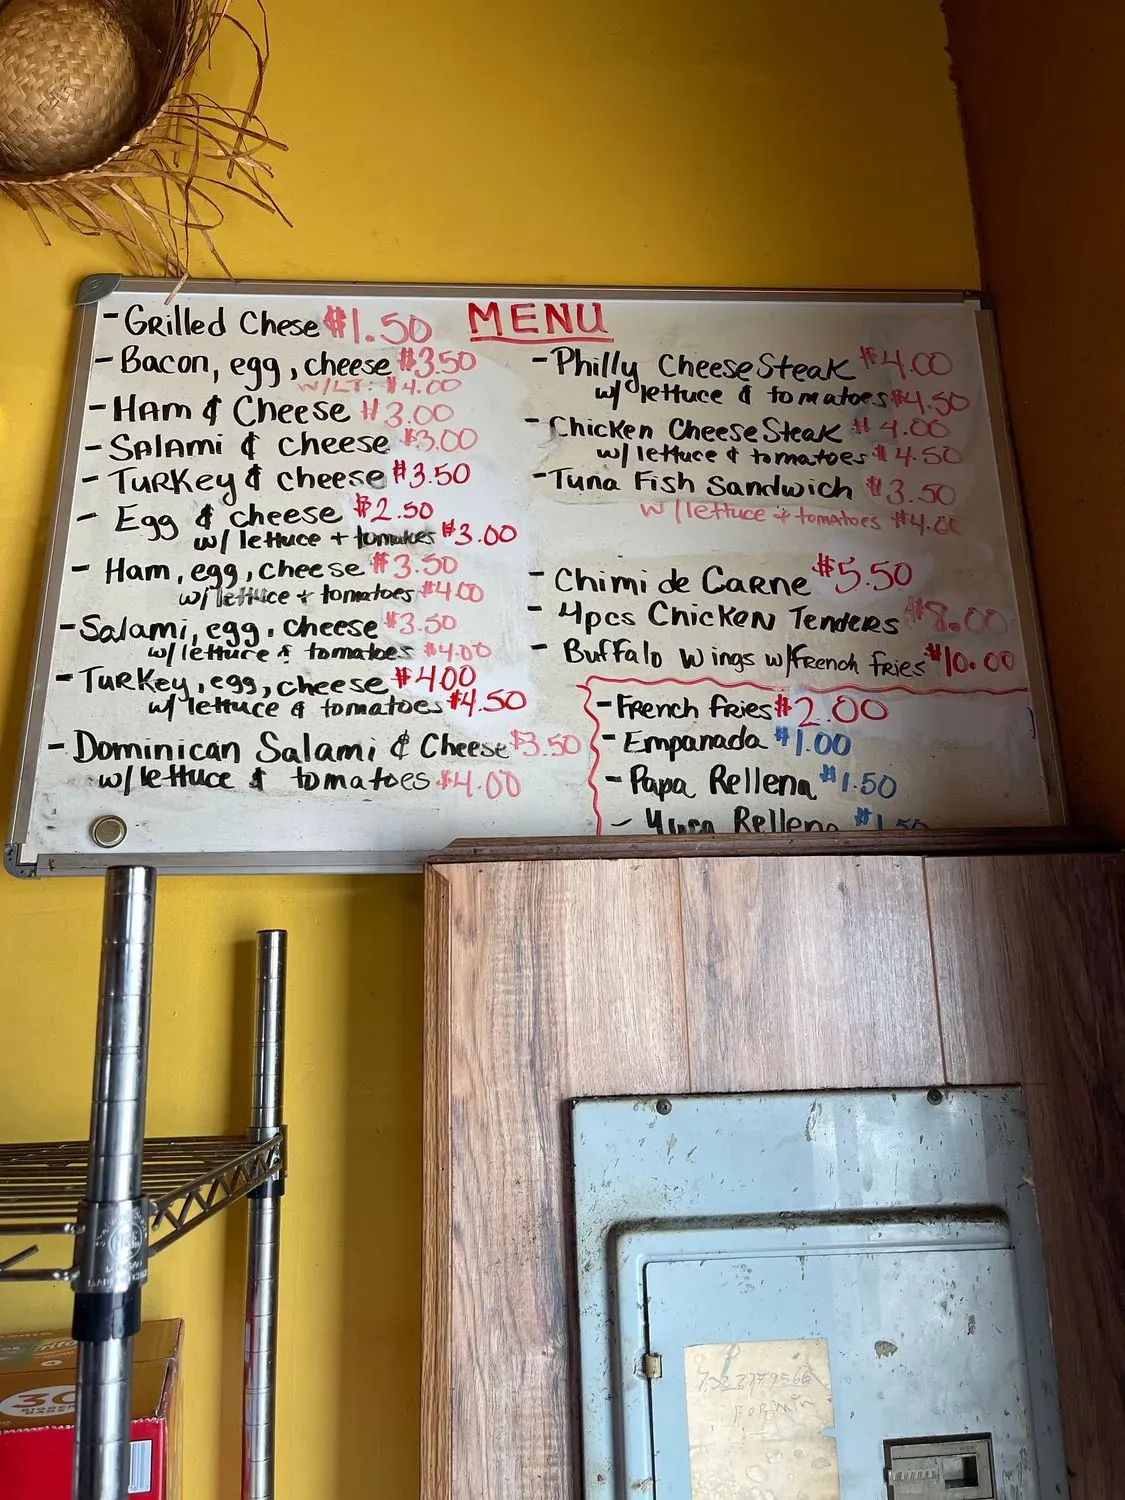 MENU
- Grilled Chese $1.50
- Bacon, egg, cheese $3.50
w/LT: $4.00
- Ham & Cheese $3.00
- Salami & cheese $3.00
- Turkey & cheese $3.50
- Egg & cheese $2.50
w/ lettuce + tomatoes $3.00
- Ham, egg, cheese $3.50
w/ lettuce + tomatoes $4.00
- Salami, egg, cheese $3.50
w/ lettuce & tomatoes $4.00
- Turkey, egg, cheese $4.00
w/ lettuce & tomatoes $4.50
- Dominican Salami & Cheese $3.50
w/ lettuce & tomatoes $4.00
- Philly Cheese Steak $4.00
w/ lettuce & tomatoes $4.50
- Chicken Cheese Steak $4.00
w/ lettuce & tomatoes $4.50
- Tuna Fish Sandwich $3.50
w/ lettuce + tomatoes $4.00
- Chimi de Carne $5.50
- 4pcs Chicken Tenders $8.00
- Buffalo Wings w/French fries $10.00
- French fries $2.00
- Empanada $1.00
- Papa Rellena $1.50
- Yuca Rellena $1.50
30